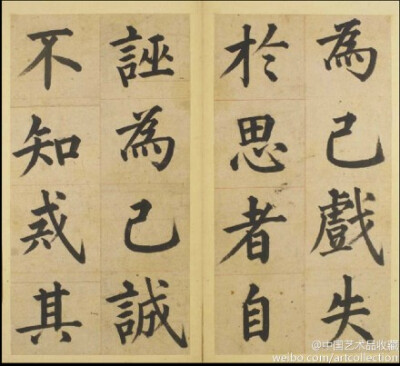 為己戲失
扵思者自
誣為己誠
不知戒其
@中国艺术品收藏
weibo.com/artcollection